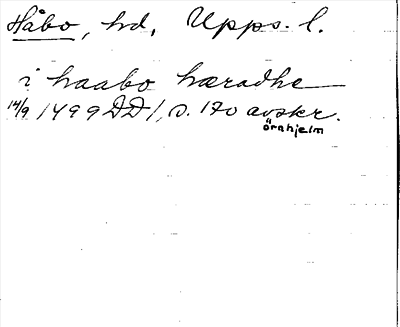 Håbo, hd, Upps. l.
i haabo hæradhe
14/9 1499 DD 1, s. 170 avskr.
örnhjelm